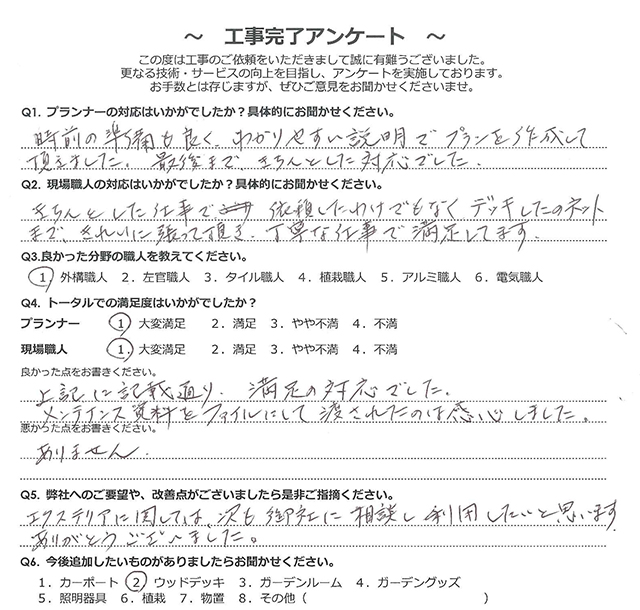 ～ 工事完了アンケート ～
この度は工事のご依頼をいただきまして誠に有難うございました。
更なる技術・サービスの向上を目指し、アンケートを実施しております。
お手数とは存じますが、ぜひご意見をお聞かせくださいませ。
Q1. プランナーの対応はいかがでしたか？具体的にお聞かせください。
時前の準備も良く、わかりやすい説明でプランを作成して
頂えました。最後まで、きちんとした対応でした。
Q2. 現場職人の対応はいかがでしたか？具体的にお聞かせください。
きちんとした仕事で 依頼したわけでもなく デッキしたのネット
まで、きれいに張って頂き、丁寧な仕事で満足してます。
Q3.良かった分野の職人を教えてください。
1 外構職人 2．左官職人 3．タイル職人 4．植栽職人 5．アルミ職人 6．電気職人
Q4. トータルでの満足度はいかがでしたか？
プランナー 1 大変満足 2．満足 3．やや不満 4．不満
現場職人 1．大変満足 2．満足 3．やや不満 4．不満
良かった点をお書きください。
上記に記載通り、満足の対応でした。
メンテナンス資料をファイルにして渡されたのは感心しました。
悪かった点をお書きください。
ありません
Q5. 弊社へのご要望や、改善点がございましたら是非ご指摘ください。
エクステリアに関しては、次も御社に相談し利用したいと思います
ありがとうございました。
Q6. 今後追加したいものがありましたらお聞かせください。
1．カーポート 2 ウッドデッキ 3．ガーデンルーム 4．ガーデングッズ
5．照明器具 6．植栽 7．物置 8．その他（ ）